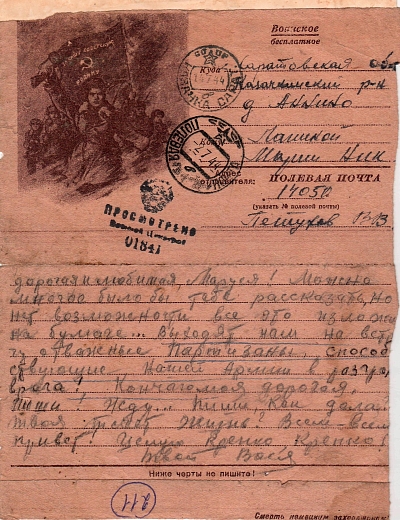 Воинское
бесплатное
Куда Саратовская обл
Казачкинский р-н
д Аннино
Кому
Марии Ник
Адрес отправителя: ПОЛЕВАЯ ПОЧТА
14050
(указать № полевой почты)
Петухов
ПРОСМОТРЕНО
Военной Цензурой
01841
дорогая и любимая, Маруся! Можно
многое было бы тебе рассказать, но
нет возможности все это изложить
на бумаге... Выходят нам на встре
чу отважные партизаны, способ
ствующие нашей Армии в разгро
врага! Кончаю моя дорогая,
Пиши! Жду... пиши как дела.
Твоя жизнь? Всем-всем
привет! Целую Крепко Крепко!
Вася
Ниже черты не пишите!
211
Смерть немецким захватчикам!